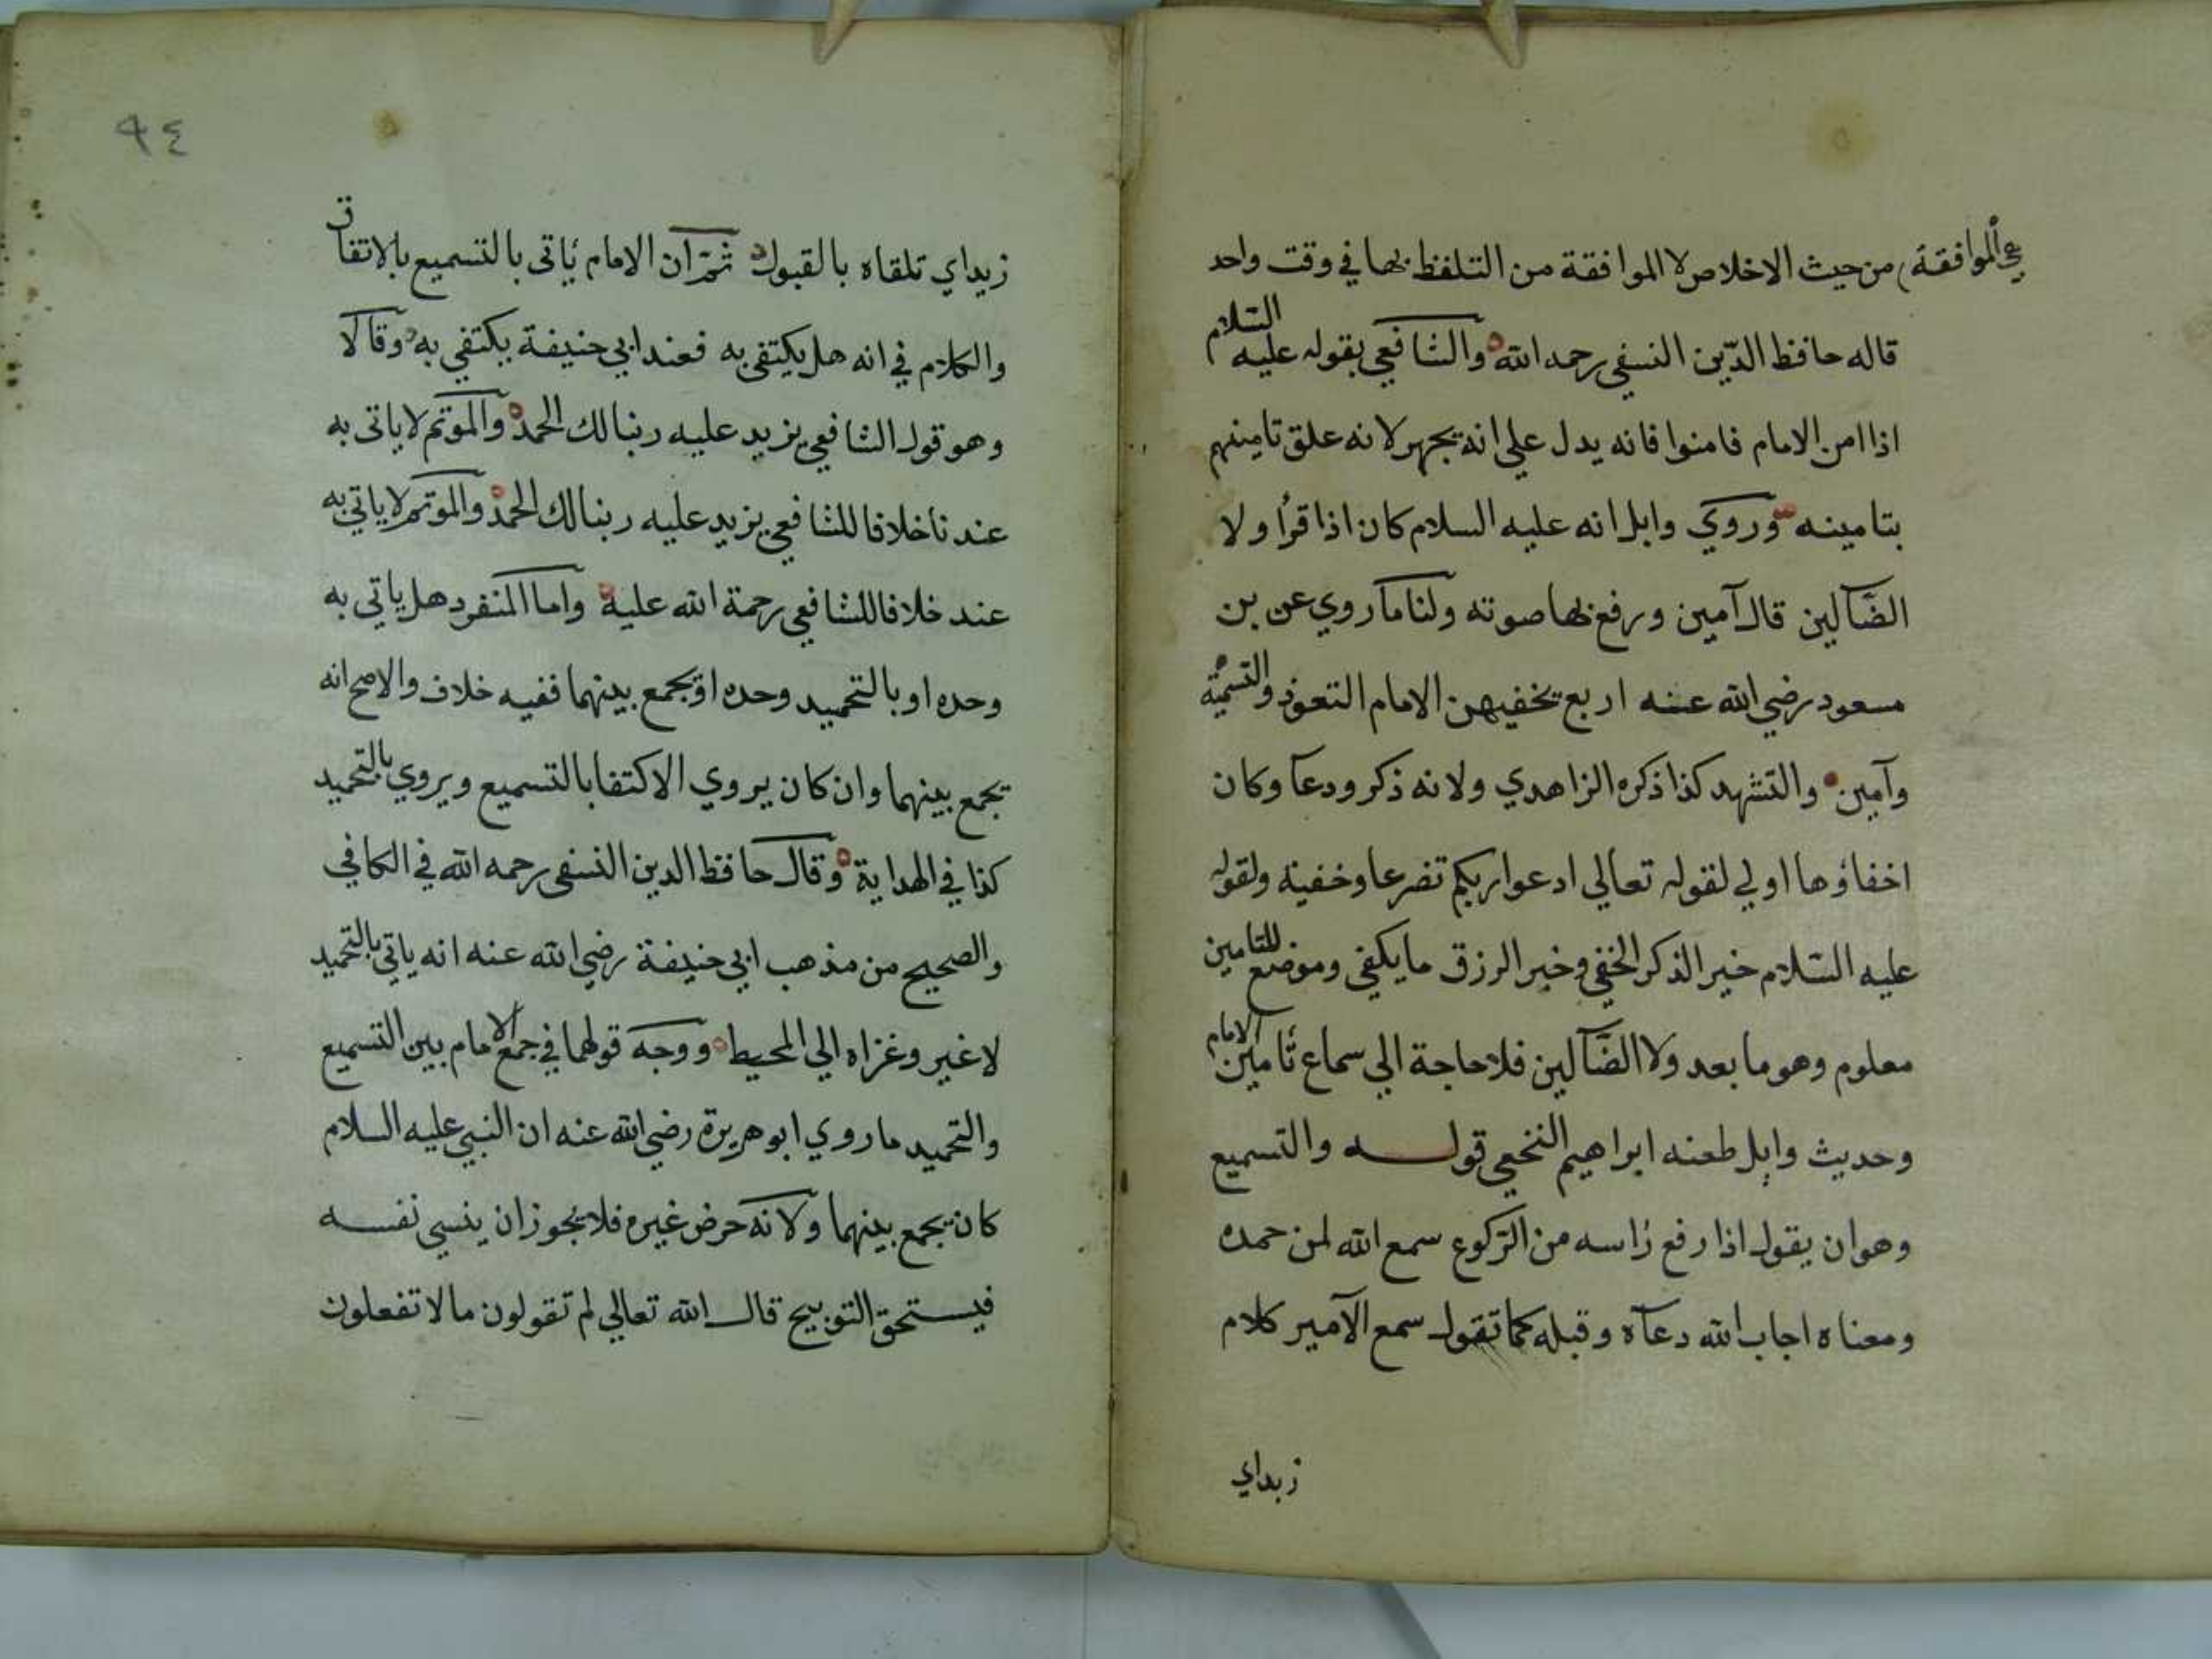 هي الموافقة من حيث الاخلاص لا الموافقة من التلفظ بها في وقت واحد
قاله حافظ الدّين النسفي رحمه الله والشافعي بقوله عليه السلام
اذا امن الامام فامنوا فانه يدل علي انه يجهر لانه علق تامينهم
بتامينه وروي وابل انه عليه السلام كان اذا قرأ ولا
الضّآلين قال آمين ورفع بها صوته ولنا ما روي عن بن
مسعود رضي الله عنه اربع يخفيهن الامام التعوذ والتسمية
وآمين والتشهد كذا ذكره الزاهدي ولانه ذكر ودعآ وكان
اخفاؤها اولي لقوله تعالي ادعوا ربكم تضرعا وخفية ولقوله
عليه السّلام خير الذكر الخفي وخير الرزق ما يكفي وموضع التامين
معلوم وهو ما بعد ولا الضّآلين فلا حاجة الي سماع تامين الامام
وحديث وابل طعنه ابراهيم النخعي قوله والتسميع
وهو ان يقول اذا رفع راسه من الرّكوع سمع الله لمن حمده
ومعناه اجاب الله دعآه وقبله كما تقول سمع الآمير كلام
زيداي
٩٤
زيداي تلقاه بالقبول ثمّ ان الامام ياتى بالتسميع بالاتفاق
والكلام في انه هل يكتفى به فعند ابي حنيفة يكتفي به وقالا
وهو قول الشافعي يزيد عليه ربنا لك الحمد والموتم لا ياتى به
عندنا خلافا للشافعي يزيد عليه ربنا لك الحمد والموتم لا ياتي به
عند خلافا للشافعي رحمة الله عليه واما المنفرد هل ياتي به
وحده او بالتحميد وحده او يجمع بينهما ففيه خلاف والاصح انه
يجمع بينهما وان كان يروي الاكتفا بالتسميع ويروي بالتحميد
كذا في الهداية وقال حافظ الدين النسفى رحمه الله في الكافي
والصحيح من مذهب ابي حنيفة رضي الله عنه انه ياتي بالتحميد
لا غير وغزاه الي المحيط ووجه قولهما في جمع الامام بين التسميع
والتحميد ما روي ابو هريرة رضي الله عنه ان النبي عليه السلام
كان يجمع بينهما ولانه حرض غيره فلا يجوز ان ينسي نفسه
فيستحق التوبيح قال الله تعالي لم تقولون ما لا تفعلون